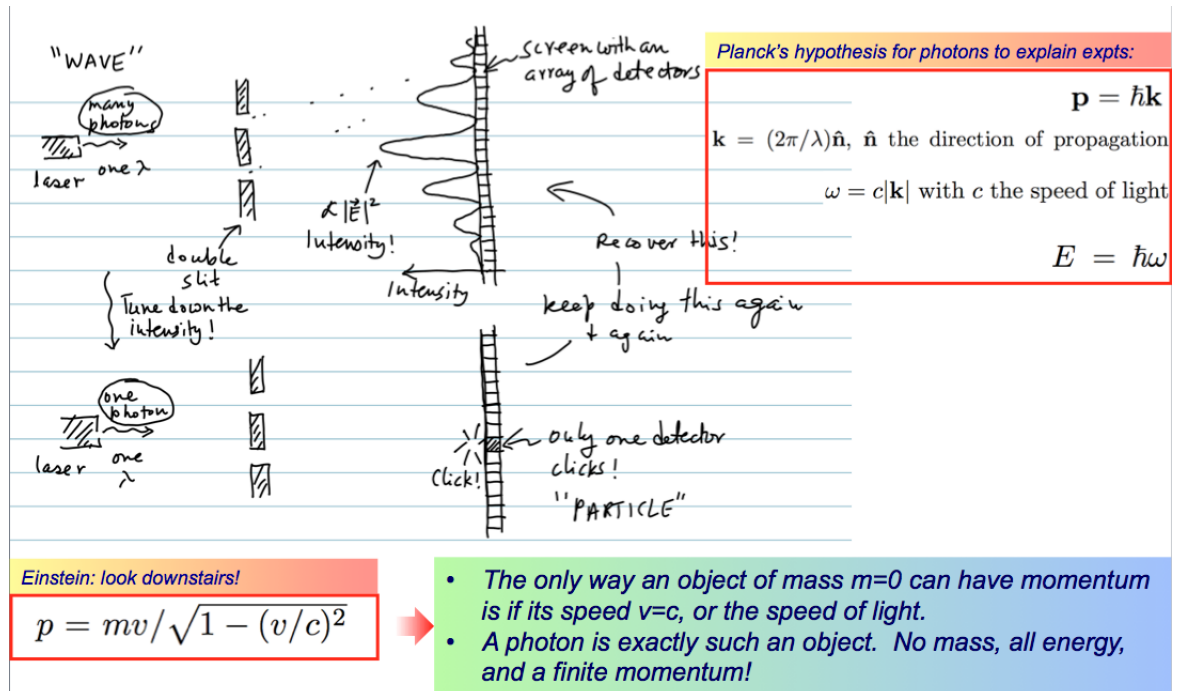 "WAVE"
many
photons
laser one λ
double
slit
Tune down the
intensity!
∝|E⃗|²
Intensity!
Intensity
screen with an
array of detectors
Recover this!
keep doing this again
+ again
one
photon
laser one
λ
Click!
only one detector
clicks!
"PARTICLE"
Planck's hypothesis for photons to explain expts:
p = ħk
k = (2π/λ)n̂, n̂ the direction of propagation
ω = c|k| with c the speed of light
E = ħω
Einstein: look downstairs!
p = mv/√1 − (v/c)²
• The only way an object of mass m=0 can have momentum
is if its speed v=c, or the speed of light.
• A photon is exactly such an object. No mass, all energy,
and a finite momentum!